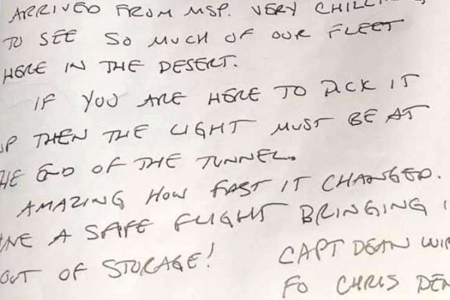 ARRIVED FROM MSP. VERY CHILLING
TO SEE SO MUCH OF OUR FLEET
HERE IN THE DESERT.
IF YOU ARE HERE TO PICK IT
UP THEN THE LIGHT MUST BE AT
THE END OF THE TUNNEL.
AMAZING HOW FAST IT CHANGED.
A SAFE FLIGHT BRINGING
OUT OF STORAGE!
CAPT DEAN
FO CHRIS